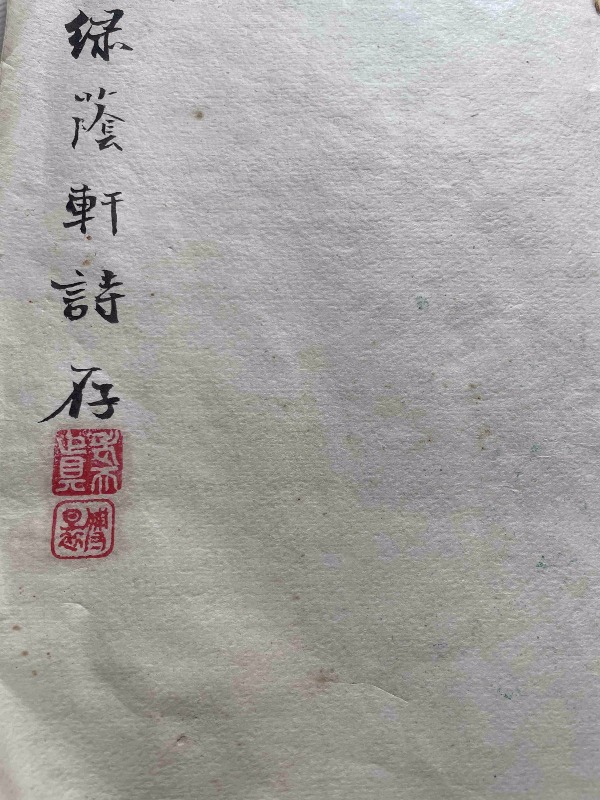 緑蔭軒詩存